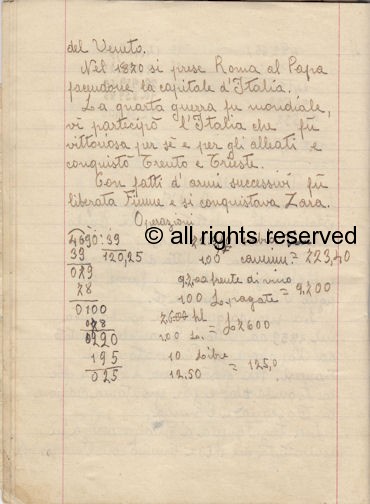 del Veneto.
Nel 1870 si prese Roma al Papa
facendone la capitale d'Italia.
La quarta guerra fu mondiale,
vi partecipò l'Italia che fu
vittoriosa per sé e per gli alleati e
conquistò Trento e Trieste.
Con fatti d'armi successivi fu
liberata Fiume e si conquistava Zara.
Operazioni
© all rights reserved
4690:39
39 120,25
100 = 223,40
079
78
di vino
100 pagate = 9200
0100
078
hl
100 = 2600
0220
195
10 Libre
12.50 = 125,0
025